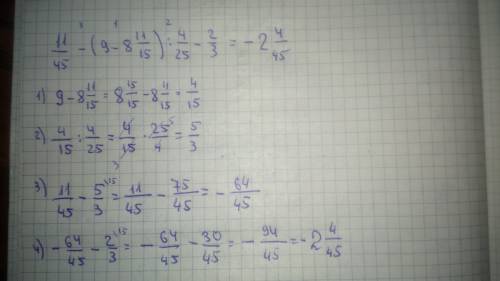 3 1 2
11/45 - (9 - 8 11/15) : 4/25 - 2/3 = - 2 4/45
1) 9 - 8 11/15 = 8 15/15 - 8 11/15 = 4/15
2) 4/15 : 4/25 = 4/15 · 25/4 = 5/3
3 5
3) 11/45 - 5/3 \15 = 11/45 - 75/45 = - 64/45
4) - 64/45 - 2/3 \15 = - 64/45 - 30/45 = - 94/45 = - 2 4/45